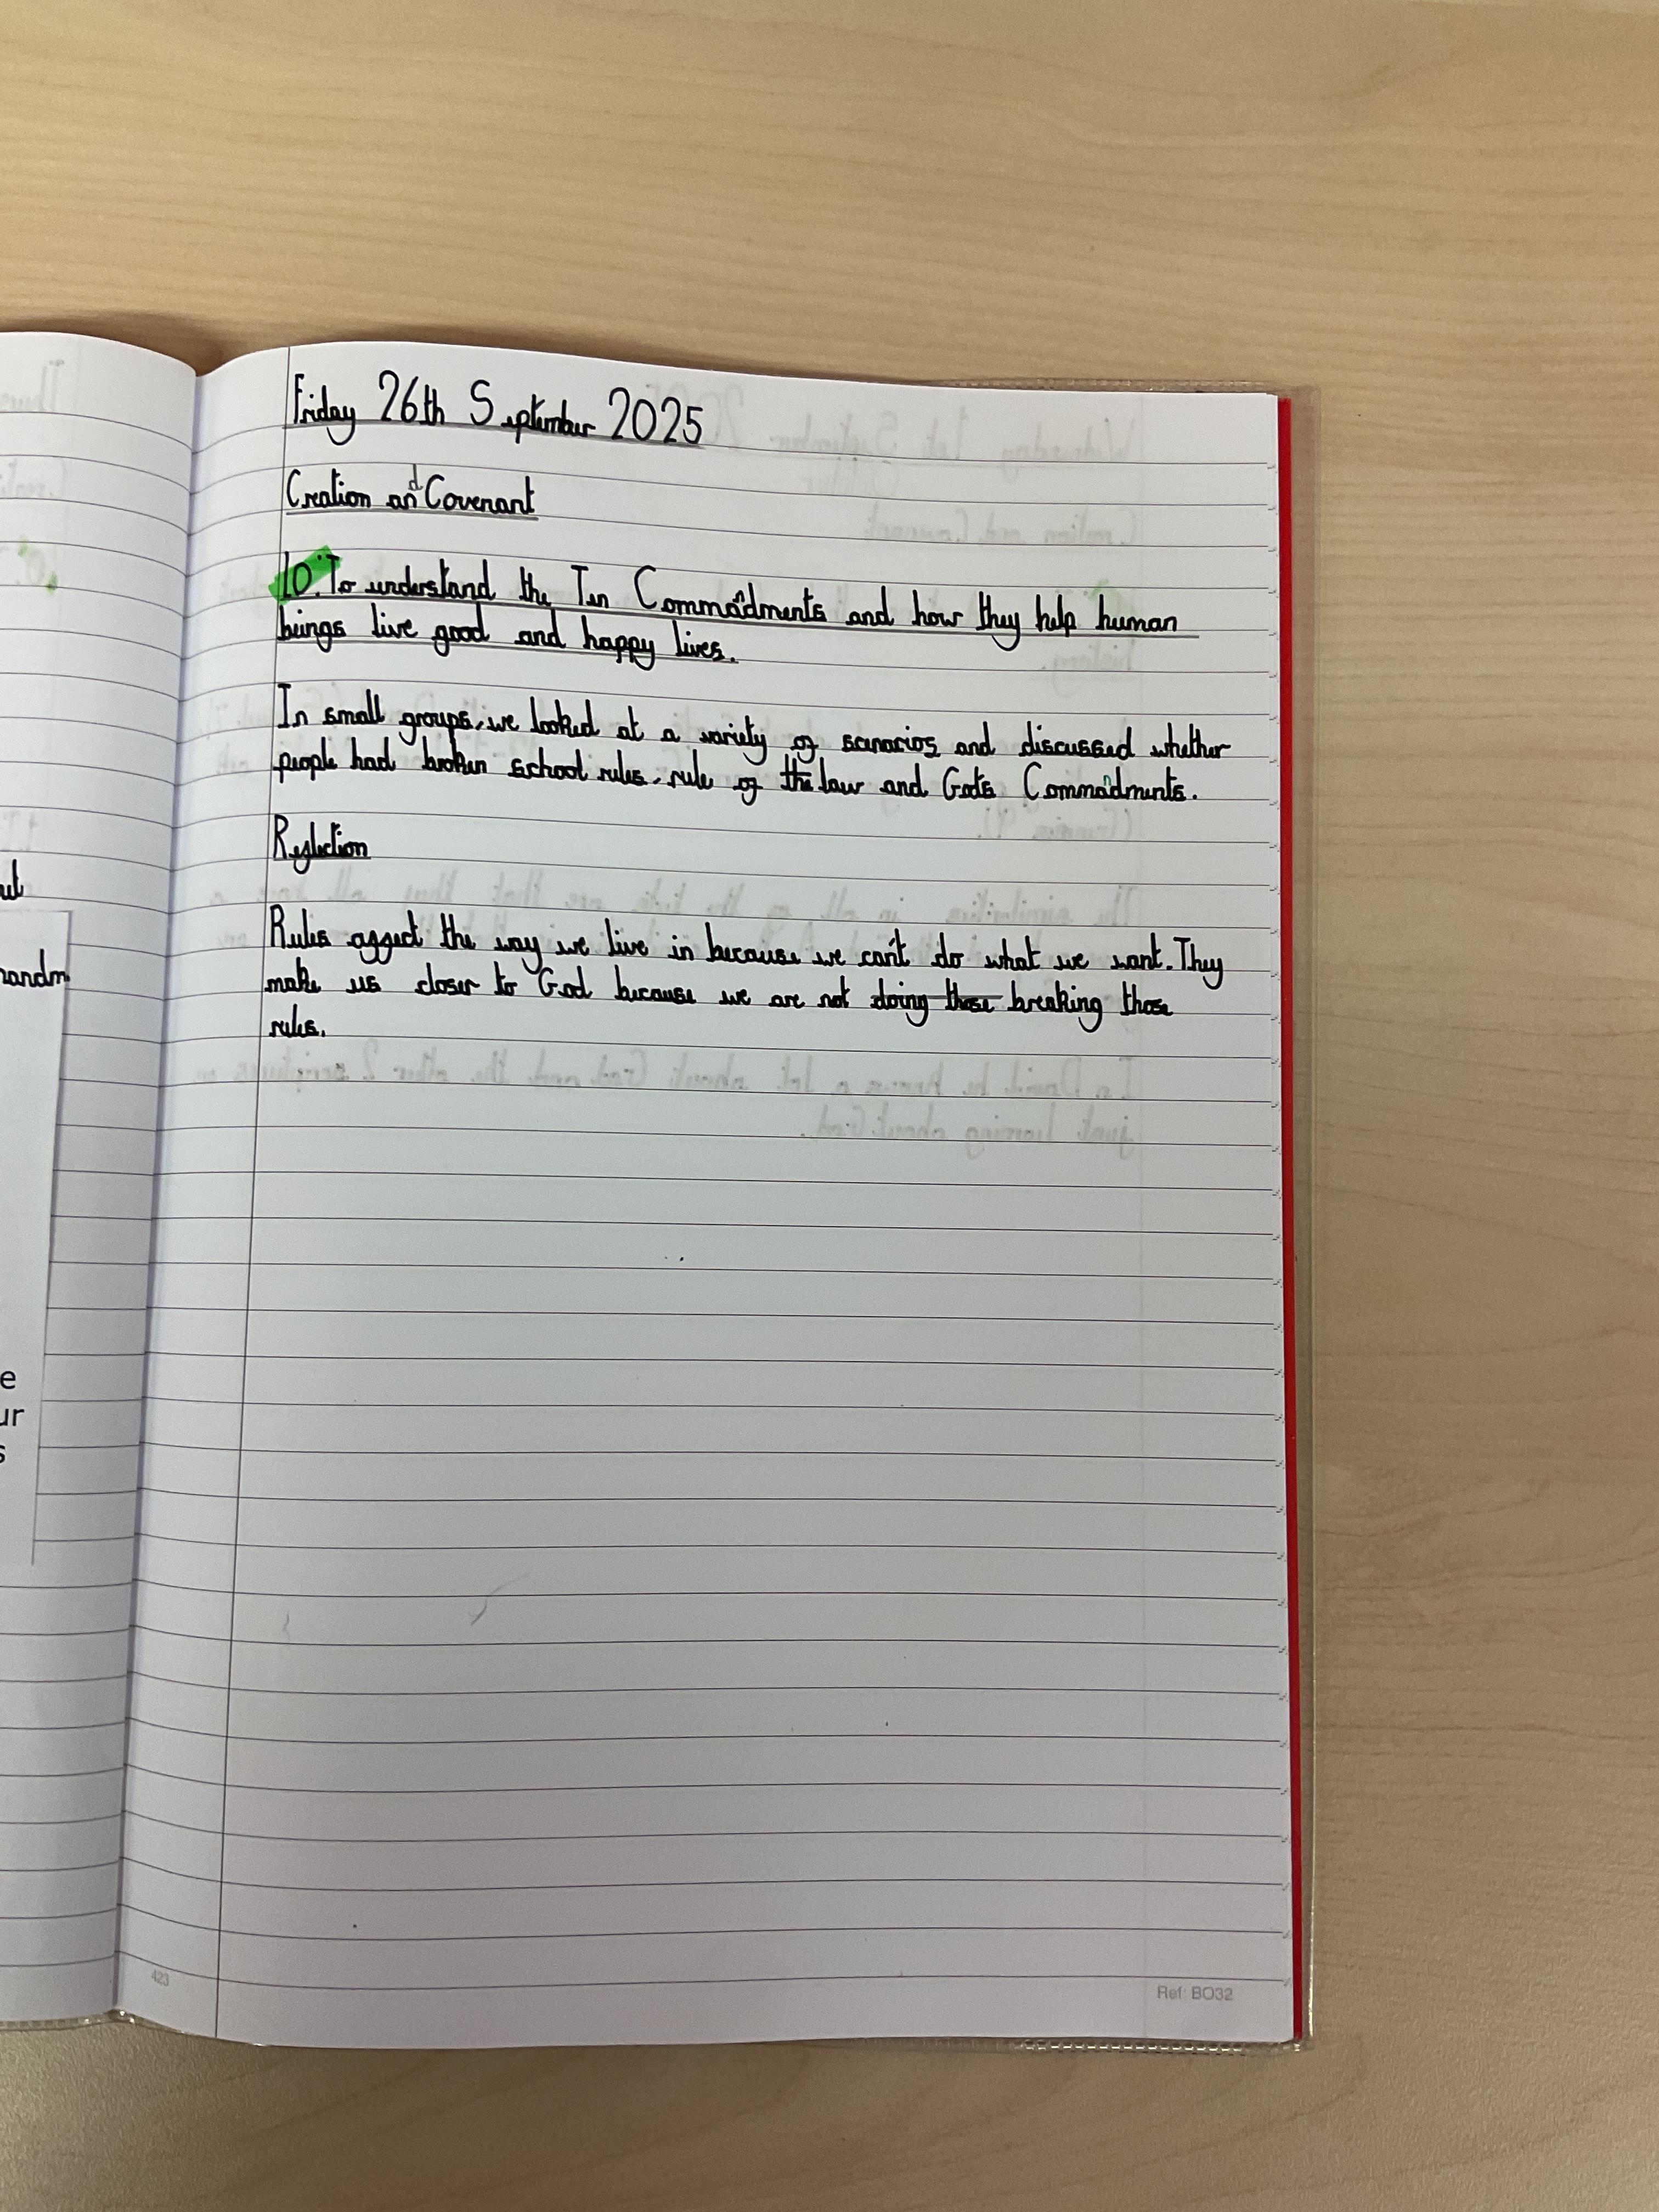 Friday 26th September 2025
Creation and Covenant
LO: To understand the Ten Commandments and how they help human
beings live good and happy lives.
In small groups, we looked at a variety of scenarios and discussed whether
people had broken school rules, rule of the law and Gods Commandments.
Reflection
Rules affect the way we live in because we can't do what we want. They
make us closer to God because we are not doing those breaking those
rules.
e
ur
s
423
Ref: BO32